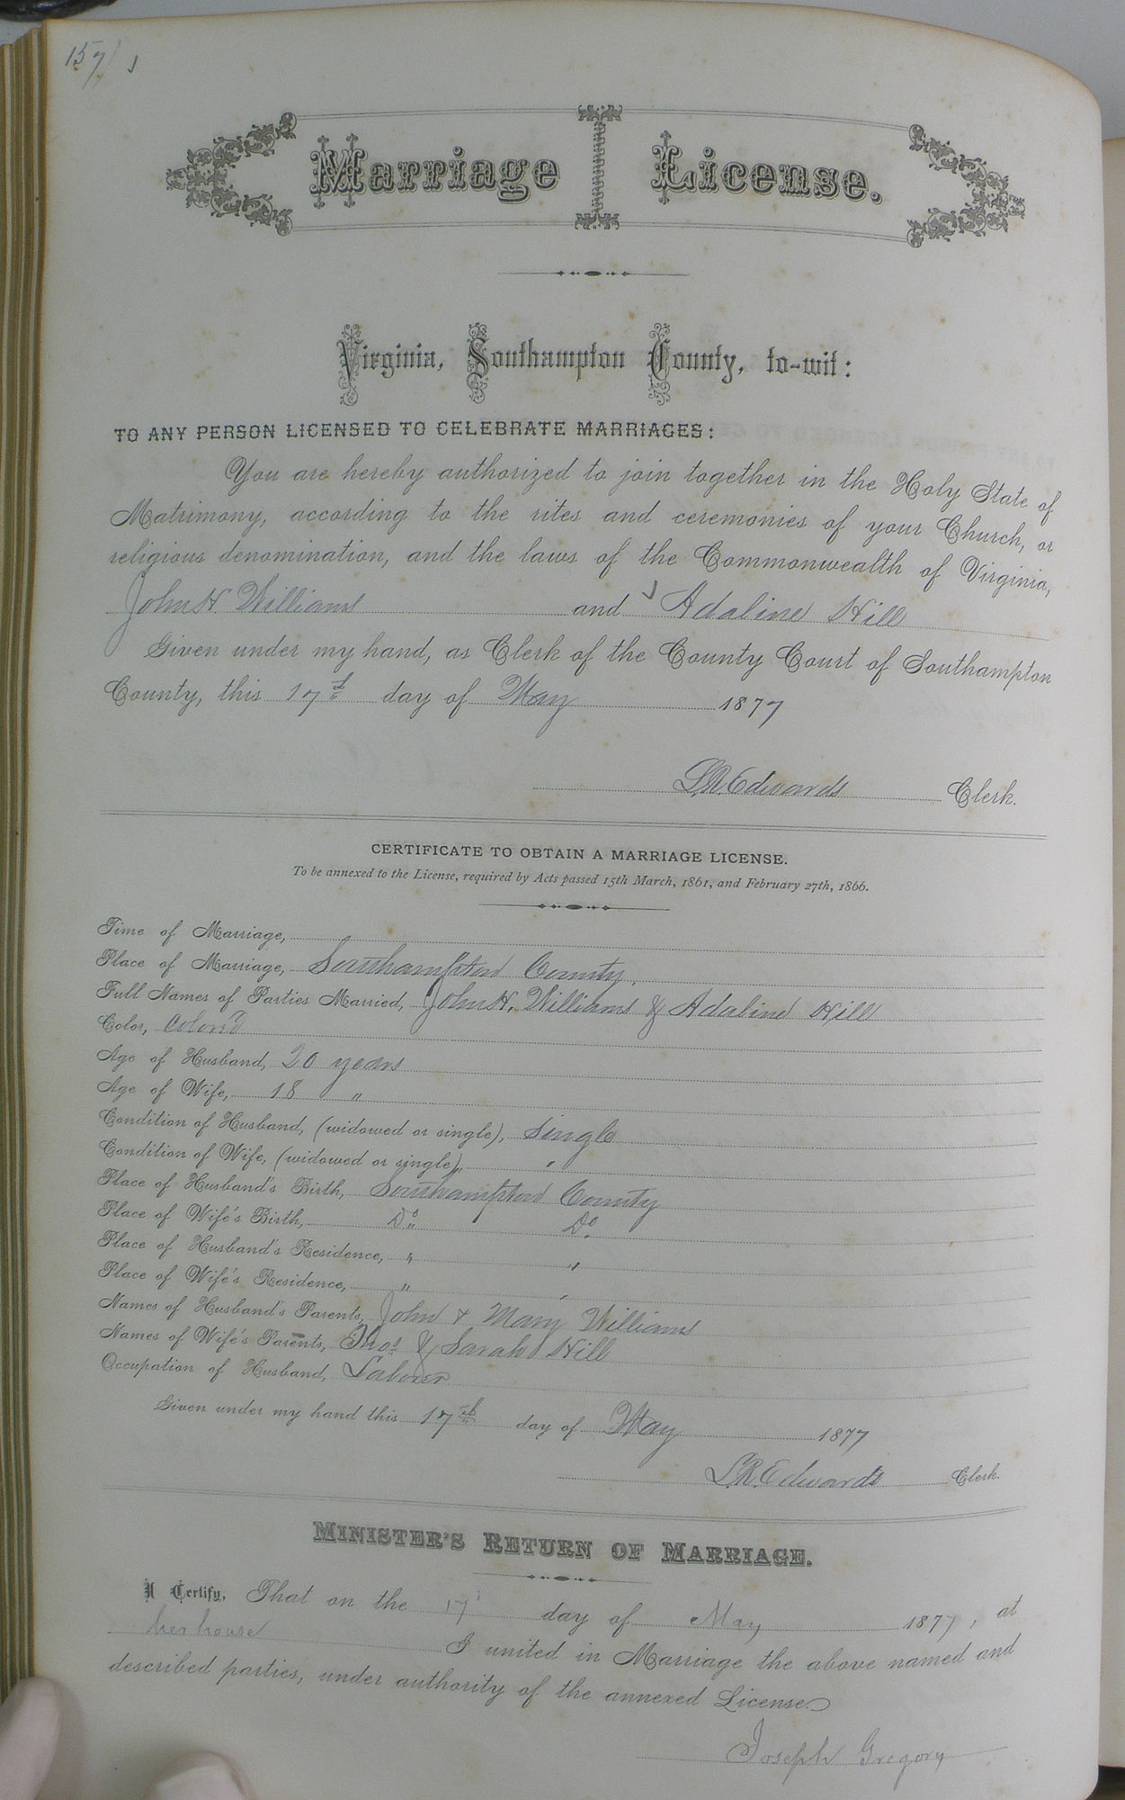 157
Marriage License.
Virginia, Southampton County, to-wit:
TO ANY PERSON LICENSED TO CELEBRATE MARRIAGES:
You are hereby authorized to join together in the Holy State of
Matrimony, according to the rites and ceremonies of your Church, or
religious denomination, and the laws of the Commonwealth of Virginia,
John H. Williams and Adaline Hill
Given under my hand, as Clerk of the County Court of Southampton
County, this 17th day of May 1877
L.R. Edwards Clerk.
CERTIFICATE TO OBTAIN A MARRIAGE LICENSE.
To be annexed to the License, required by Acts passed 15th March, 1861, and February 27th, 1866.
Time of Marriage,
Place of Marriage, Southampton County.
Full Names of Parties Married, John H. Williams & Adaline Hill
Color, Colord
Age of Husband, 20 years
Age of Wife, 18 "
Condition of Husband, (widowed or single), Single
Condition of Wife, (widowed or single), "
Place of Husband's Birth, Southampton County
Place of Wife's Birth, Do Do
Place of Husband's Residence, " "
Place of Wife's Residence, " "
Names of Husband's Parents, John & Mary Williams
Names of Wife's Parents, Thos & Sarah Hill
Occupation of Husband, Laborer
Given under my hand this 17th day of May 1877
L.R. Edwards Clerk.
MINISTER'S RETURN OF MARRIAGE.
I Certify, That on the 17 day of May 1877, at
her house I united in Marriage the above named and
described parties, under authority of the annexed License.
Joseph Gregory